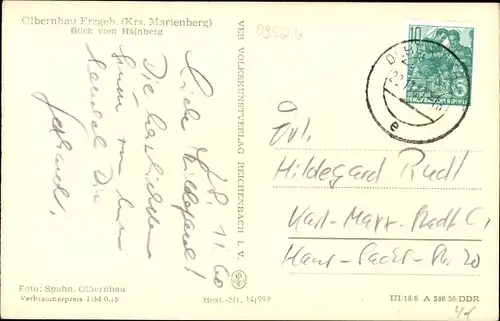 Olbernhau Erzgeb. (Krs. Marienberg)
Blick vom Hainberg
09526
11.60
Liebe Hildegard!
Die herzlichsten
von hier
sendet Dir
Gerhard.
VEB VOLKSKUNSTVERLAG REICHENBACH I. V.
10
DEUTSCHE
DEMOKRATISCHE REPUBLIK
e
Frl.
Hildegard Rudl
Karl-Marx-Stadt C 1
Hans-Sachs-Str. 20
Foto: Spahn, Olbernhau
Verbraucherpreis DM 0.15
Best.-Nr. 14/997
III/18/6 A 246/56-DDR